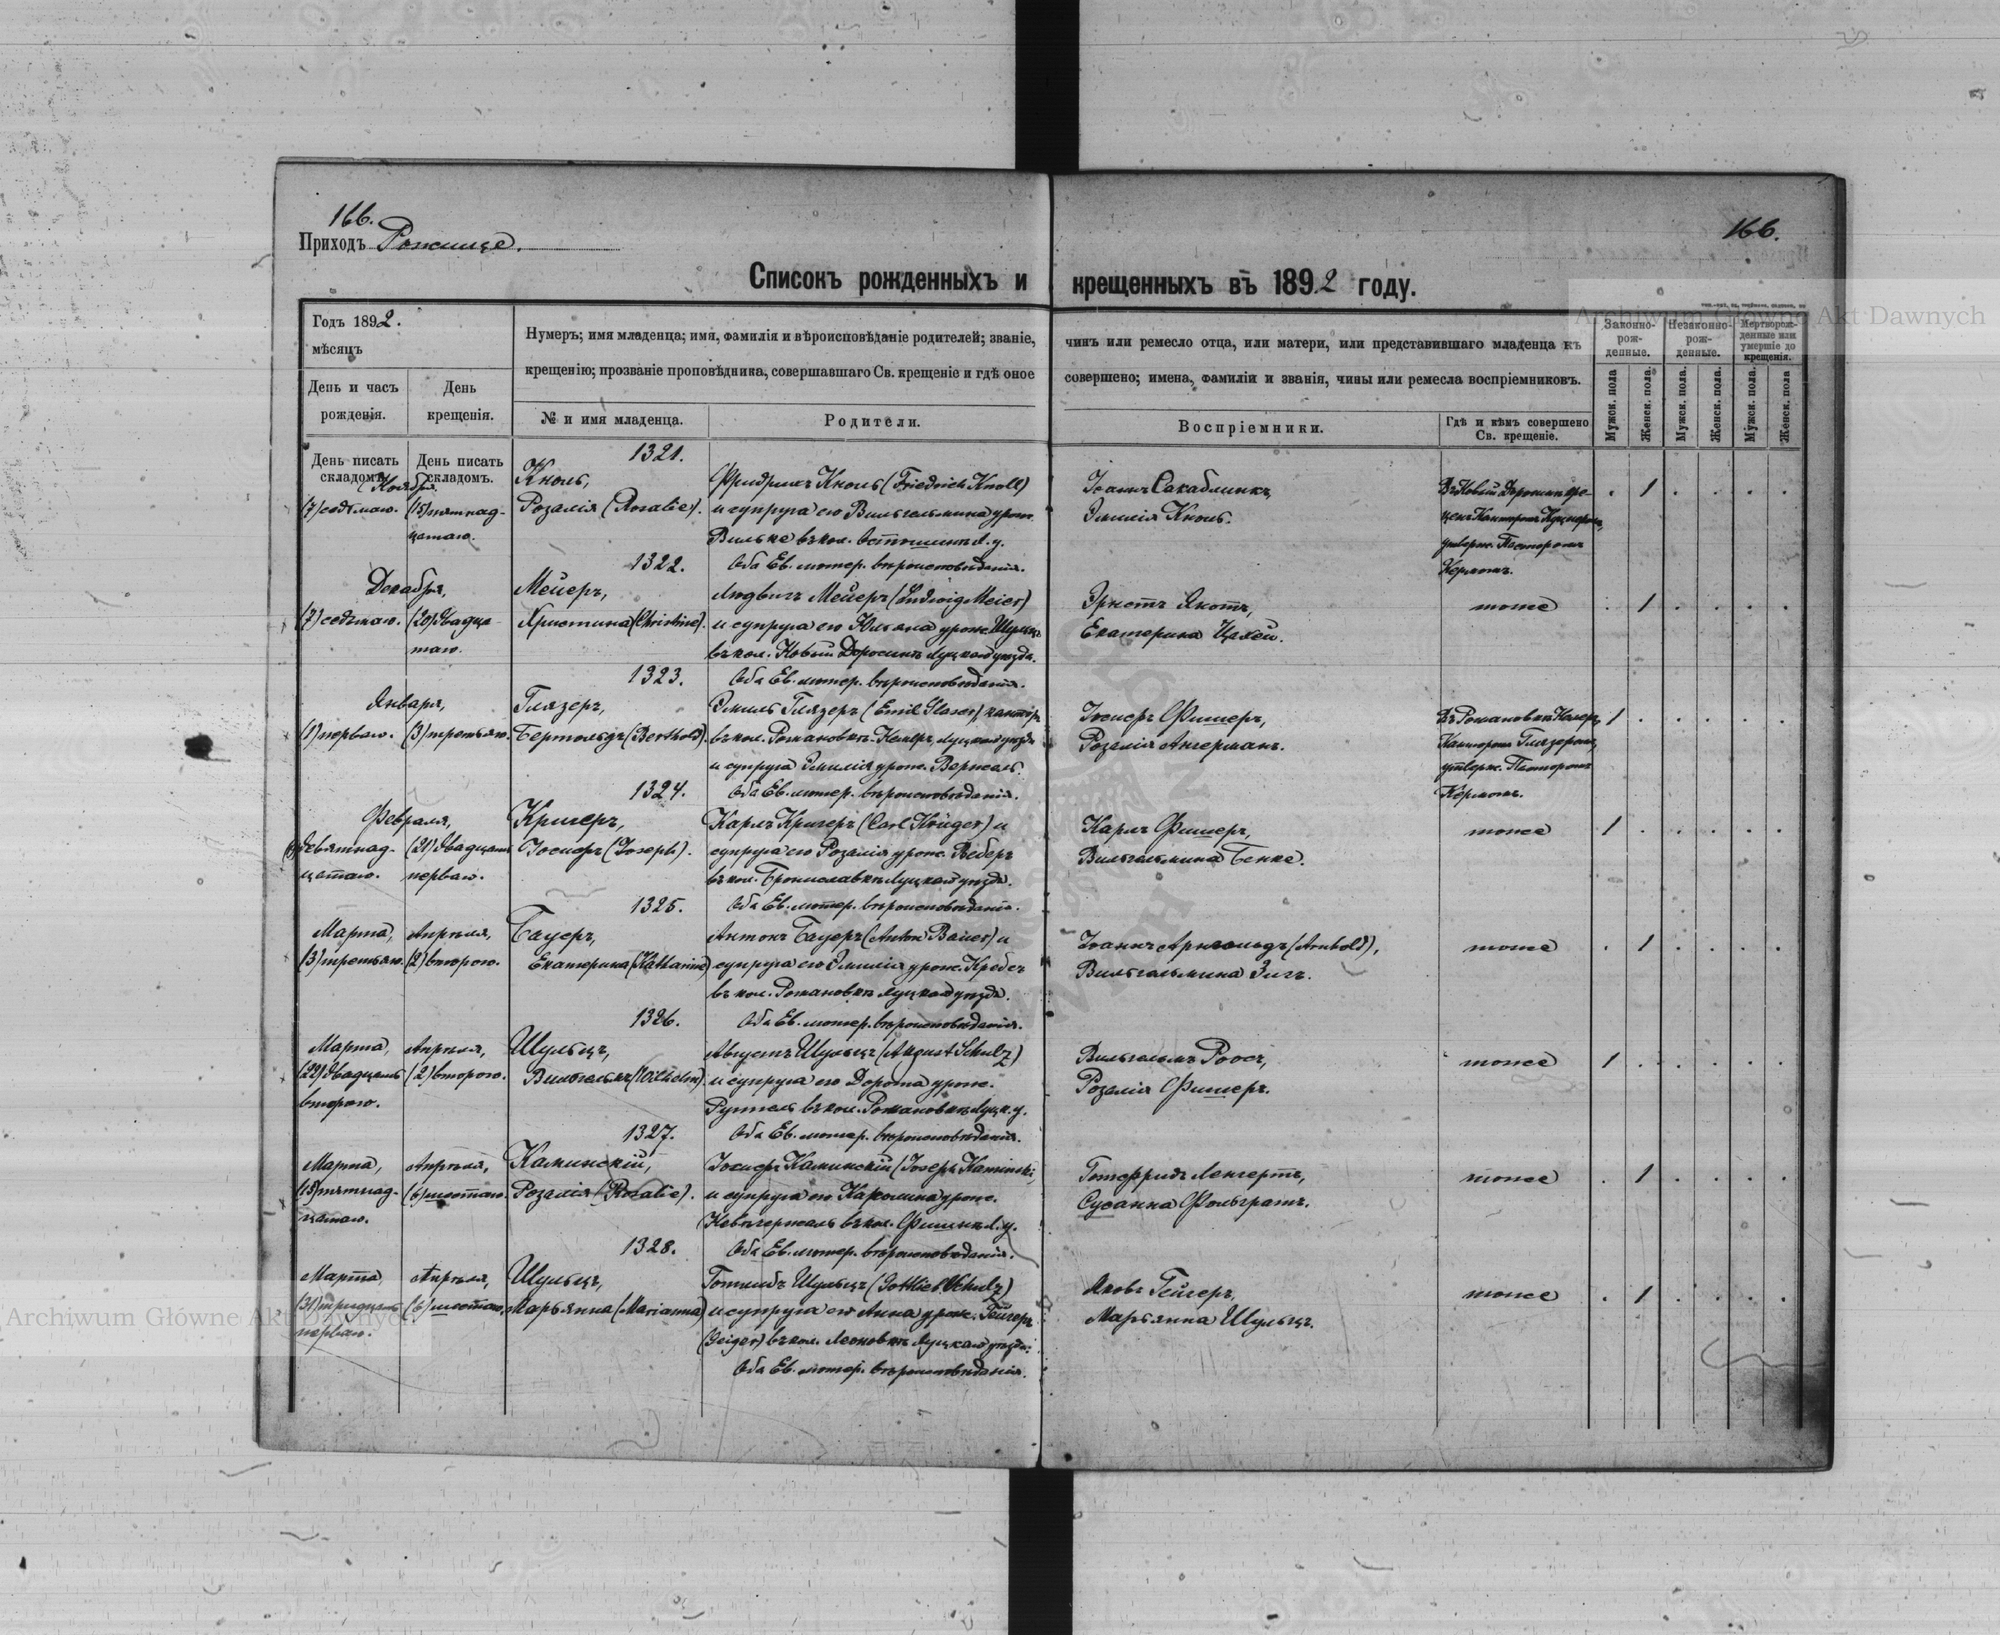 166.
Приходъ Рожище.
166.
Списокъ рожденныхъ и крещенныхъ въ 1892 году.
Archiwum Główne Akt Dawnych
Годъ 1892.
мѣсяцъ
День и часъ рожденія.
День крещенія.
Нумеръ; имя младенца; имя, фамилія и вѣроисповѣданіе родителей; званіе,
крещенію; прозваніе проповѣдника, совершавшаго Св. крещеніе и гдѣ оное
№ и имя младенца.
Родители.
чинъ или ремесло отца, или матери, или представившаго младенца къ
совершено; имена, фамиліи и званія, чины или ремесла воспріемниковъ.
Воспріемники.
Гдѣ и кѣмъ совершено
Св. крещеніе.
Законно-рожденные.
Незаконно-рожденные.
Мертворожденные или умершіе до крещенія.
Мужск. пола
Женск. пола.
Мужск. пола.
Женск. пола.
Мужск. пола.
Женск. пола
День писать складомъ.
День писать складомъ.
1321.
Ноября.
(7) седьмаго.
(15) пятнад-
цатаго.
Кноль,
Розалія (Rosalie).
Фридрихъ Кноль (Friedrich Knoll)
и супруга его Вильгельмина урож.
Вильке въ кол.
Оба Ев. лютер. вѣроисповѣданія.
Іоаннъ
Эмилія Кноль.
Въ Новый Доросинѣ кре-
щенъ Канторомъ
утверж. Пасторомъ
Кермомъ.
1 . . . .
1322.
Декабря,
(7) седьмаго.
(20) двадца-
таго.
Мейеръ,
Христина (Christine).
Людвигъ Мейеръ (Ludwig Meier)
и супруга его Юльяна урож. Шульцъ
въ кол. Новый Доросинѣ Луцкаго уѣзда.
Оба Ев. лютер. вѣроисповѣданія.
Эрнстъ
Екатерина
тоже
1 . . . .
1323.
Января,
(1) перваго.
(3) третьяго.
Глязеръ,
Бертольдъ (Berthold).
Эмиль Глязеръ (Emil Glaser) канторъ
въ кол. Романовкѣ Луцкаго уѣзда
и супруга Эмилія урож.
Оба Ев. лютер. вѣроисповѣданія.
Іосифъ Фишеръ,
Розалія Ангерманъ.
Въ Романовкѣ
Канторомъ Глязеромъ,
утверж. Пасторомъ
Кермомъ.
1 . . . . .
1324.
Февраля,
(19) девятнад-
цатаго.
(21) двадцать
перваго.
Кригеръ,
Іосифъ (Joseph).
Карлъ Кригеръ (Carl Krüger) и
супруга его Розалія урож. Веберъ
въ кол. Брониславкѣ Луцкаго уѣзда.
Оба Ев. лютер. вѣроисповѣданія.
Карлъ Фишеръ,
Вильгельмина Бенке.
тоже
1 . . . . .
1325.
Марта,
(3) третьяго.
Апрѣля,
(2) второго.
Бауеръ,
Екатерина (Katharine)
Антонъ Бауеръ (Anton Bauer) и
супруга его Эмилія урож. Кребсъ
въ кол. Романовкѣ Луцкаго уѣзда.
Оба Ев. лютер. вѣроисповѣданія.
Іоаннъ Арнгольдъ (Arnhold),
Вильгельмина Зигъ.
тоже
. 1 . . . .
1326.
Марта,
(22) двадцать
второго.
Апрѣля,
(2) второго.
Шульцъ,
Вильгельмъ (Wilhelm).
Августъ Шульцъ (August Schulz)
и супруга его Дорота урож.
въ кол. Романовкѣ Луцк. у.
Оба Ев. лютер. вѣроисповѣданія.
Вильгельмъ Роосъ,
Розалія Фишеръ.
тоже
1 . . . . .
1327.
Марта,
(15) пятнад-
цатаго.
Апрѣля,
(6) шестаго.
Каминскій,
Розалія (Rosalie).
Іосифъ Каминскій (Joseph Kaminski)
и супруга его Каролина урож.
въ кол.
Оба Ев. лютер. вѣроисповѣданія.
Готфридъ Ленгертъ,
Сусанна Фольгратъ.
тоже
. 1 . . . .
1328.
Марта,
(31) тридцать
перваго.
Апрѣля,
(6) шестаго.
Шульцъ,
Марьянна (Marianna)
Готлибъ Шульцъ (Gottlieb Schulz)
и супруга его Анна урож. Гейгеръ
(Geiger) въ кол. Леоновкѣ Луцкаго уѣзда.
Оба Ев. лютер. вѣроисповѣданія.
Яковъ Гейгеръ,
Марьянна Шульцъ.
тоже
. 1 . . . .
Archiwum Główne Akt Dawnych